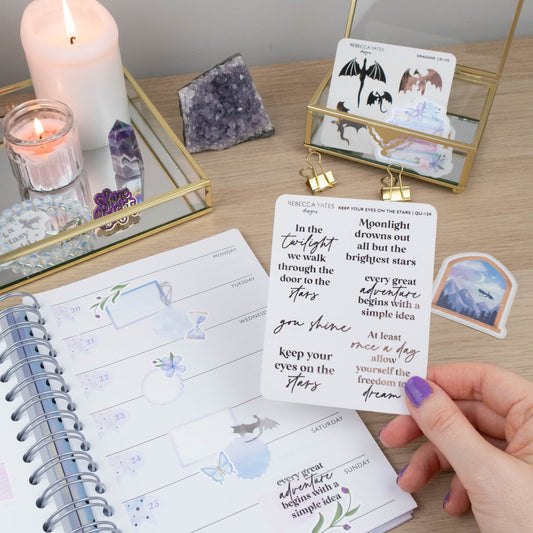 REBECCA YATES
designs
DRAGONS
REBECCA YATES
designs
KEEP YOUR EYES ON THE STARS | QU-124
In the
twilight
we walk
through the
door to the
stars
you shine
keep your
eyes on the
stars
Moonlight
drowns out
all but the
brightest stars
every great
adventure
begins with a
simple idea
At least
once a day
allow
yourself the
freedom to
dream
MONDAY
20
TUESDAY
21
WEDNESDAY
22
THURSDAY
23
FRIDAY
24
SATURDAY
25
SUNDAY
every great
adventure
begins with a
simple idea